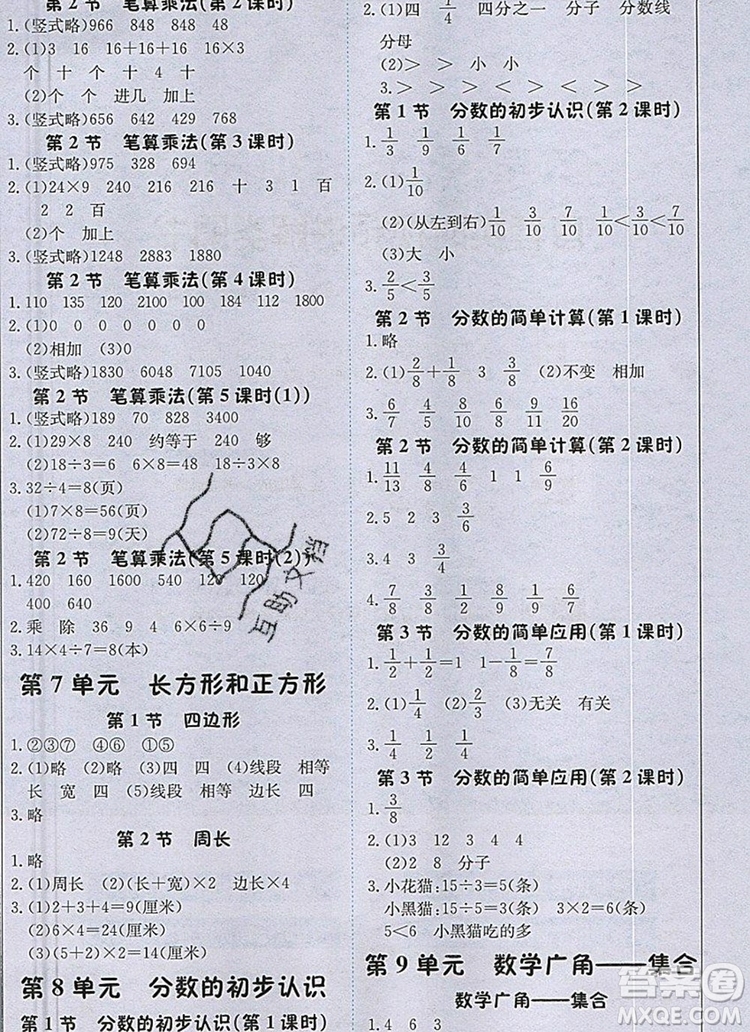 第2节 笔算乘法(第2课时)
1.(竖式略)966 848 848
2.(1)3 16 16+16 16×3
个 十 个 十 4 十
(2)个 个 进几 加上
3.(竖式略)656 642 429 768
第2节 笔算乘法(第3课时)
1.(竖式略)975 328 694
2.(1)24×9 240 216 十 3 1 百
2 2 百
(2)个 加上
3.(竖式略)1248 2883 1880
第2节 笔算乘法(第4课时)
1.110 135 120 2100 112 1800
2.(1)0 0 0 0 0
(2)相加 (3)0
3.(竖式略)1830 6048 4580 1830
第2节 笔算乘法(第5课时(1))
1.(竖式略)189 70 828 3400
2.(1)29×8 240 约等于 240 够
(2)18÷3=6 6×8=48 18÷3×8
3.32÷4=8(页)
(1)7×8=56(页)
(2)72÷8=9(天)
第2节 笔算乘法(第5课时(2))
1.420 160 1600 540 120 120
400 640
2.乘 除 36 9 4 6×6÷9
3.14×4÷7=8(本)
第7单元 长方形和正方形
第1节 四边形
1.②③⑦ ④⑥ ①⑤
2.(1)略 (2)略 (3)四 四 (4)线段 相等
长 宽 四 (5)线段 相等 四
3.略
第2节 周长
1.略
2.(1)周长 (2)(长+宽)×2 边长×4
3.(1)2+3+4=9(厘米)
(2)6×4=24(厘米)
(3)(5+2)×2=14(厘米)
第8单元 分数的初步认识
第1节 分数的初步认识(第1课时)
2.(1)四 1/4 四分之一 分数线
分母
(2)> > 小 小
3.> > < > < > < >
第1节 分数的初步认识(第2课时)
1.1/3 1/9 1/6 1/5
2.(1)1/10
(2)(从左到右)1/2 1/5 1/10 1/10<1/5<1/2
(3)大 小
3.2/5<3/5
第2节 分数的简单计算(第1课时)
1.略
2.(1)2/8+1/8 3 3/8 (2)不变 相加
3.6/7 4/6 5/8 9/11 16/20
第2节 分数的简单计算(第2课时)
1.11/13 4/8 2/9 6/10
2.5 2 3 3/6
3.4 3 3/4
4.1/7 2/8 3/9 1/2 1/4 1/8
第3节 分数的简单应用(第1课时)
1.1/2+1/2=1
2.(1)4 1/4 (2)5 5/10 (3)无关 有关
3.4/9 1/2
第3节 分数的简单应用(第2课时)
1.3/8
2.(1)3 12 3 4 4
(2)2 8 分子
3.小花猫:15÷3=5(条)
小黑猫:15÷5=3(条) 3×2=6(条)
5<6 小黑猫吃的多
第9单元 数学广角——集合
数学广角——集合
1.4 6 3
互助文档
答案圈
MXQE.COM